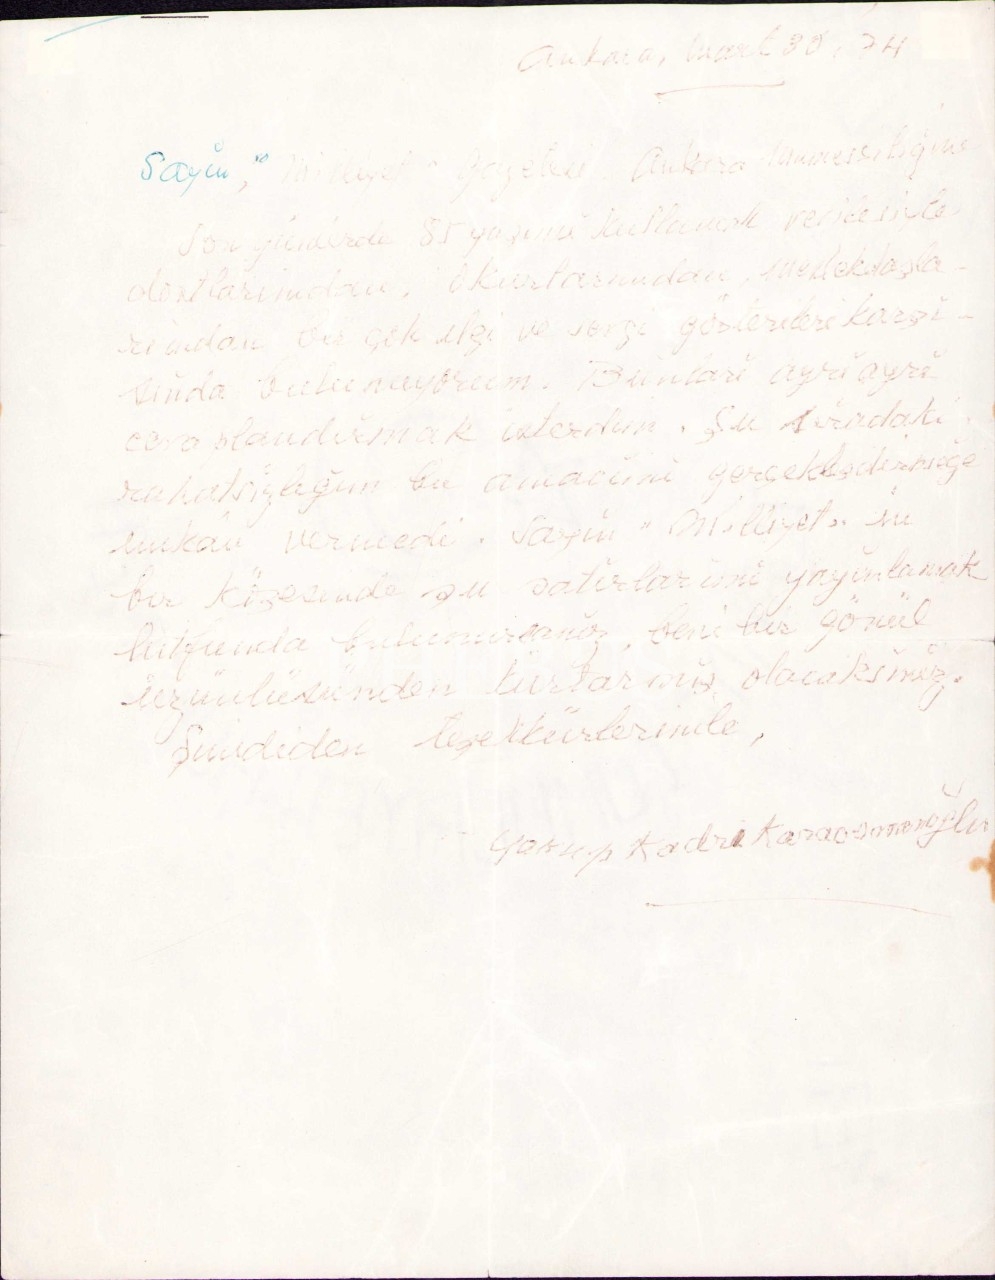 Ankara, Mart 30, 74
Sayın, "Milliyet" Gazetesi Ankara Mümessilliğine
Son günlerde 85 yaşımı kutlamak vesilesiyle
dostlarımdan, okurlarımdan, meslekdaşla-
rımdan bir çok ilgi ve sevgi gösterileri karşı-
sında bulunuyorum. Bunları ayrı ayrı
cevaplandırmak isterdim. Şu sıradaki
rahatsızlığım bu amacımı gerçekleşdirmeğe
imkân vermedi. Sayın "Milliyet" in
bir köşesinde şu satırlarımı yayınlamak
lütfunda bulunursanız beni bir gönül
üzüntüsünden kurtarmış olacaksınız.
Şimdiden teşekkürlerimle,
Yakup Kadri Karaosmanoğlu